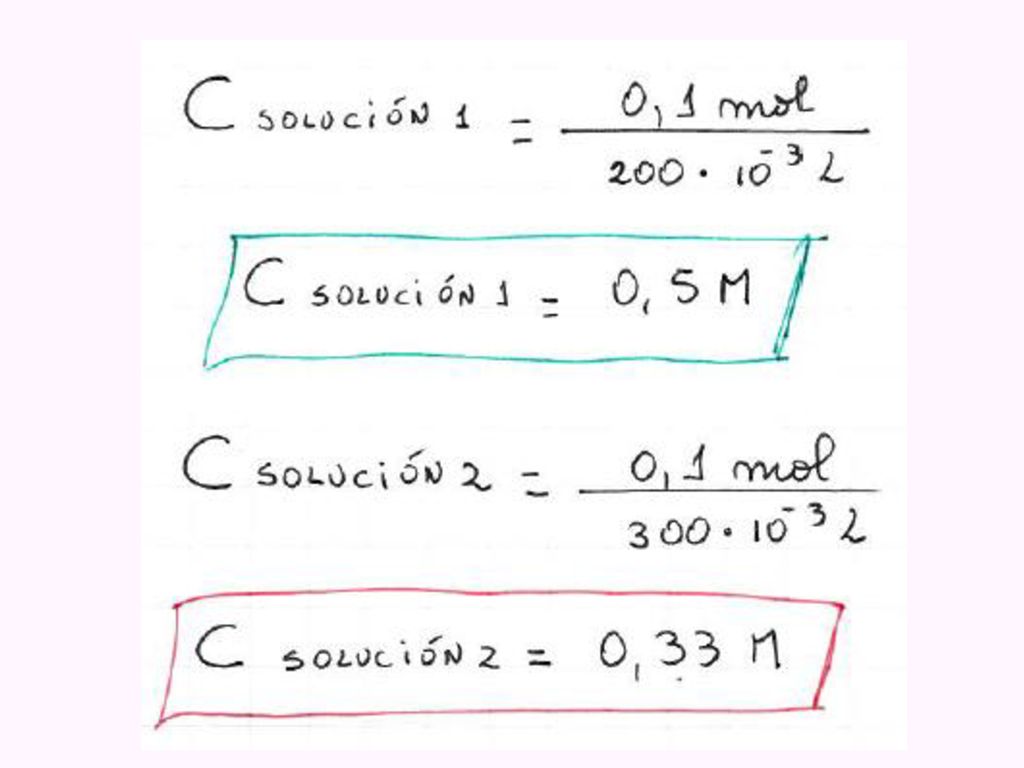 C solución 1 = 0,1 mol / 200 · 10⁻³ L
C solución 1 = 0,5 M
C solución 2 = 0,1 mol / 300 · 10⁻³ L
C solución 2 = 0,33 M